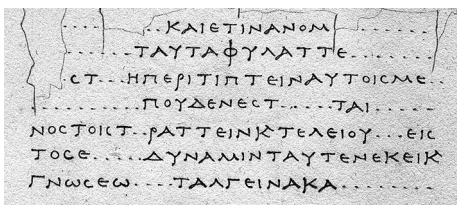 ......... ΚΑΙΕΤΙΝΑΝΟΜ .......
....... ΤΑΥΤΑΦΥΛΑΤΤΕ .......
. ϹΤ ... ΗΠΕΡΙΤΙΠΤΕΙΝΑΥΤΟΙϹΜΕ ..
......... ΠΟΥΔΕΝΕϹΤ ...... ΤΑΙ ......
ΝΟϹΤΟΙϹΤ .. ΡΑΤΤΕΙΝϏΤΕΛΕΙΟΥ ... ΕΙϹ
ΤΟϹΕ ..... ΔΥΝΑΜΙΝΤΑΥΤΕΝΕΚΕΙϏ
ΓΝΩϹΕΩ .... ΤΑΛΓΕΙΝΑΚΑ .........